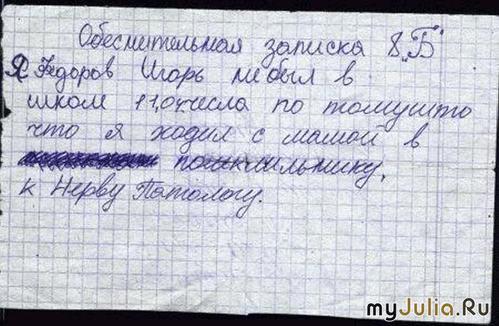 Обеснительная записка 8 „Б"
Я Федоров Игорь небыл в
школе 11,04числа по томушто
что я ходил с мамой в
к Нерву Патологу.
myJulia.Ru